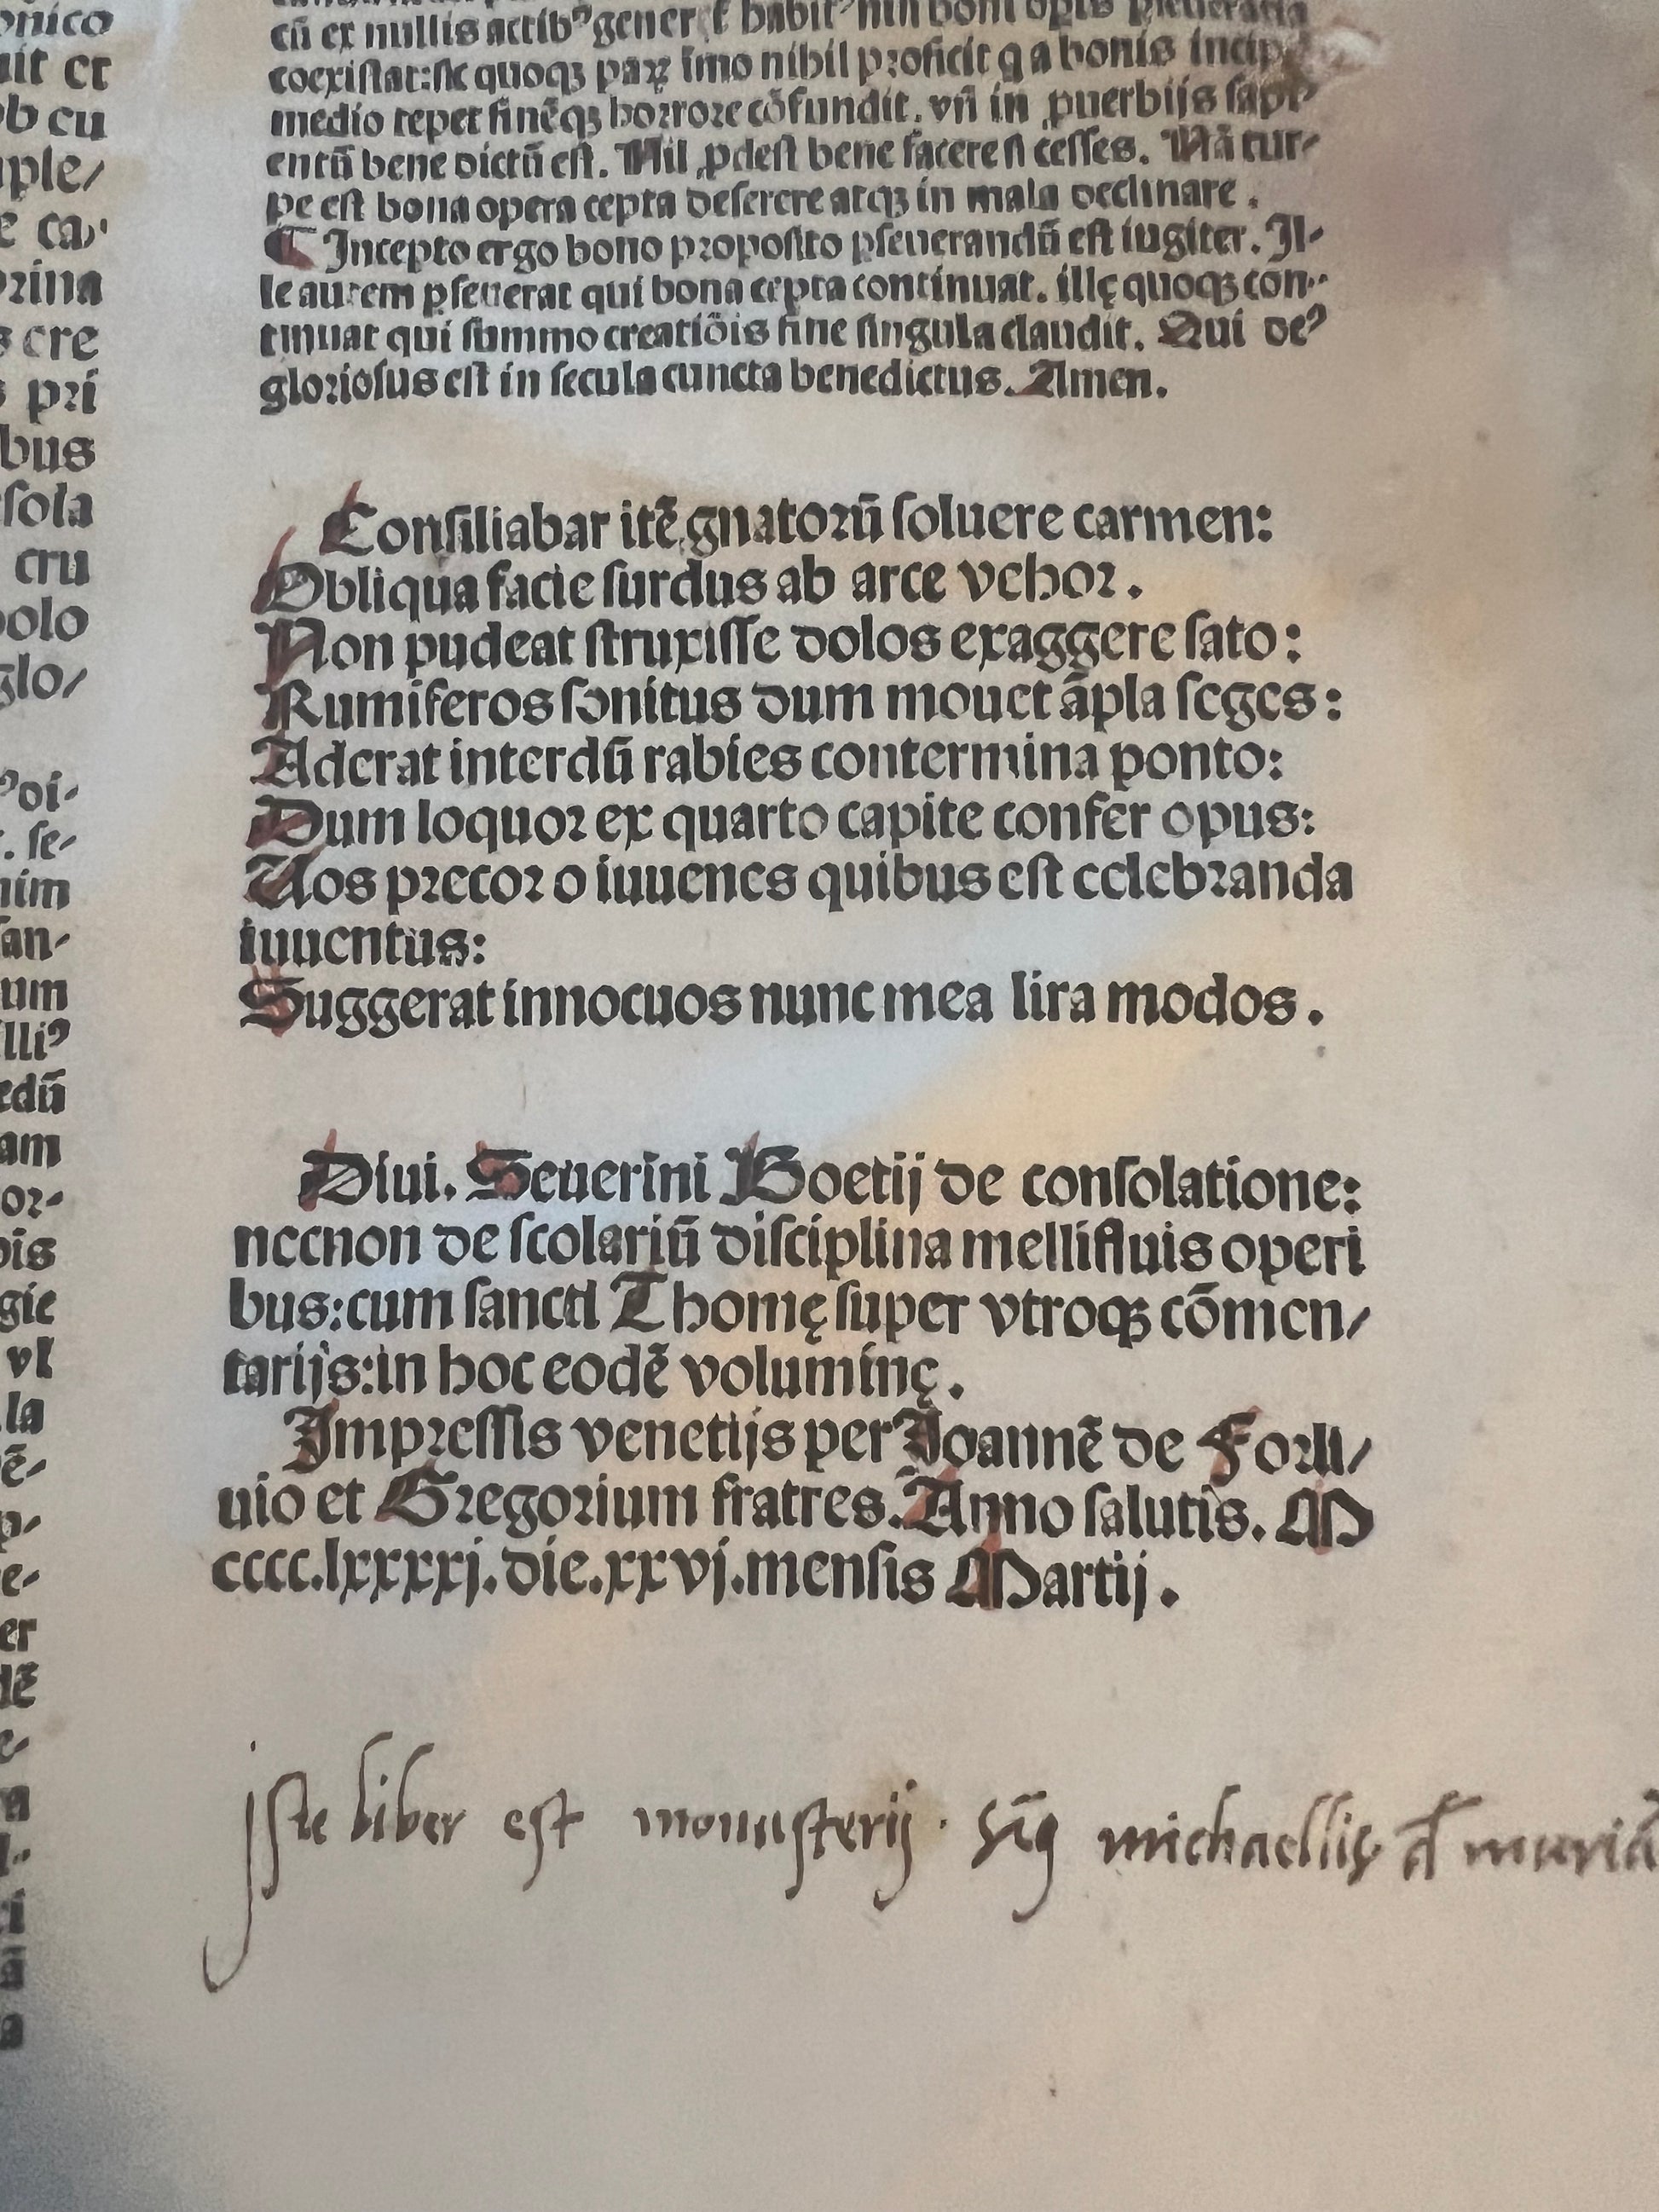 onico
uit et
ob cu
uple/
e ca,
orina
s cre
s pri
bus
sola
cru
polo
glo/
oi-
. se-
nim
san-
um
lliꝰ
edū
am
or-
ois
gie
vl
la
ē-
p-
e-
er
dē
e-
a
cū ex nullis actibꝰ gener habitꝰ boni opis
coexistat: sic quoqꝫ paꝝ īmo nihil proficit q a bonis incip
medio tepet finēqꝫ horrore cōfundit. vn̄ in ꝓuerbijs sapi
entū bene dictū est. Nil ꝓdest bene facere n̄ cesses. Nā tur-
pe est bona opera cepta deserere atqꝫ in mala declinare.
¶ Incepto ergo bono proposito ꝑseuerandū est iugiter. Il-
le autem ꝑseuerat qui bona cepta continuat. illę quoqꝫ con-
tinuat qui summo creatiōis fine singula claudit. Qui deꝰ
gloriosus est in secula cuncta benedictus. Amen.
Consiliabar itē gnatorū soluere carmen:
Obliqua facie surdus ab arce vehor.
Non pudeat struxisse dolos exaggere sato:
Rumiferos sonitus dum mouet āpla seges:
Aderat interdū rabies contermina ponto:
Dum loquor ex quarto capite confer opus:
Uos precor o iuuenes quibus est celebranda
iuuentus:
Suggerat innocuos nunc mea lira modos.
Diui. Seuerini Boetij de consolatione:
necnon de scolariū disciplina mellifluis operi
bus: cum sancti Thomę super vtroqꝫ cōmen/
tarijs: in hoc eodē voluminę.
Impressis venetijs per Joannē de Forli/
uio et Gregorium fratres. Anno salutis. M
cccc.lxxxxj. die. xxvj. mensis Martij.
jste liber est monasterij. sc̄i michaellis d muriā